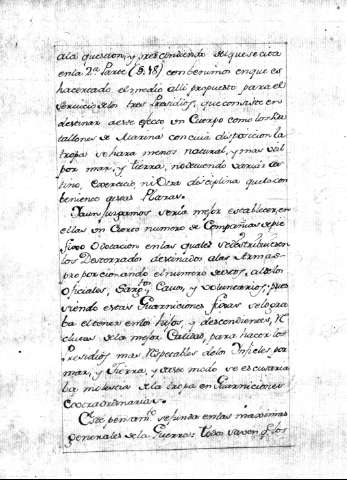 ala question, y prescindiendo del que se cita
en la 2ª Parte (§. 48) convenimos en que es
hacertado el medio alli propuesto para el
servicio de los tres Presidios, que consiste en
destinar a este efecto un Cuerpo como los Ba
tallones de Marina con cuia disposicion la
tropa se hara menos natural, y mas util
por mar, y tierra, no deviendo variar des
tino, exercicio, ni otra disciplina que la con
beniente a esas Plazas.
Y aun juzgamos seria mejor establecer, en
ellas un Cierto numero de Compañias de pie
fixo o dotacion en las quales se distribuiesen
los Desterrados destinados a las Armas
proporcionando el numero de estos, al de los
Oficiales, Sargtos Cavos, y voluntarios, pues
siendo estas Guarniciones fixas se logra
ba el tener en los hijos, y descendientes, Re
clutas de la mejor Calidad, para hacer los
Presidios mas Respetables de los Infieles por
mar, y Tierra, y de este modo se escusaria
la molestia de la tropa en Guarniciones
extraordinarias.
Este pensamto se funda en las maximas
generales de la Guerra: todos saven q. los